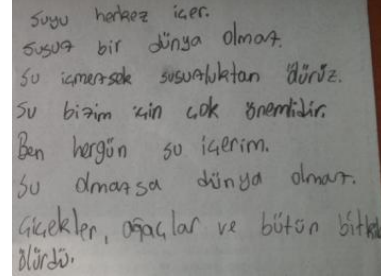 Suyu herkez içer.
Susuz bir dünya olmaz.
Su içmezsek susuzluktan ölürüz.
Su bizim için çok önemlidir.
Ben hergün su içerim.
Su olmazsa dünya olmaz.
Çiçekler, ağaçlar ve bütün bitkil
ölürdü.